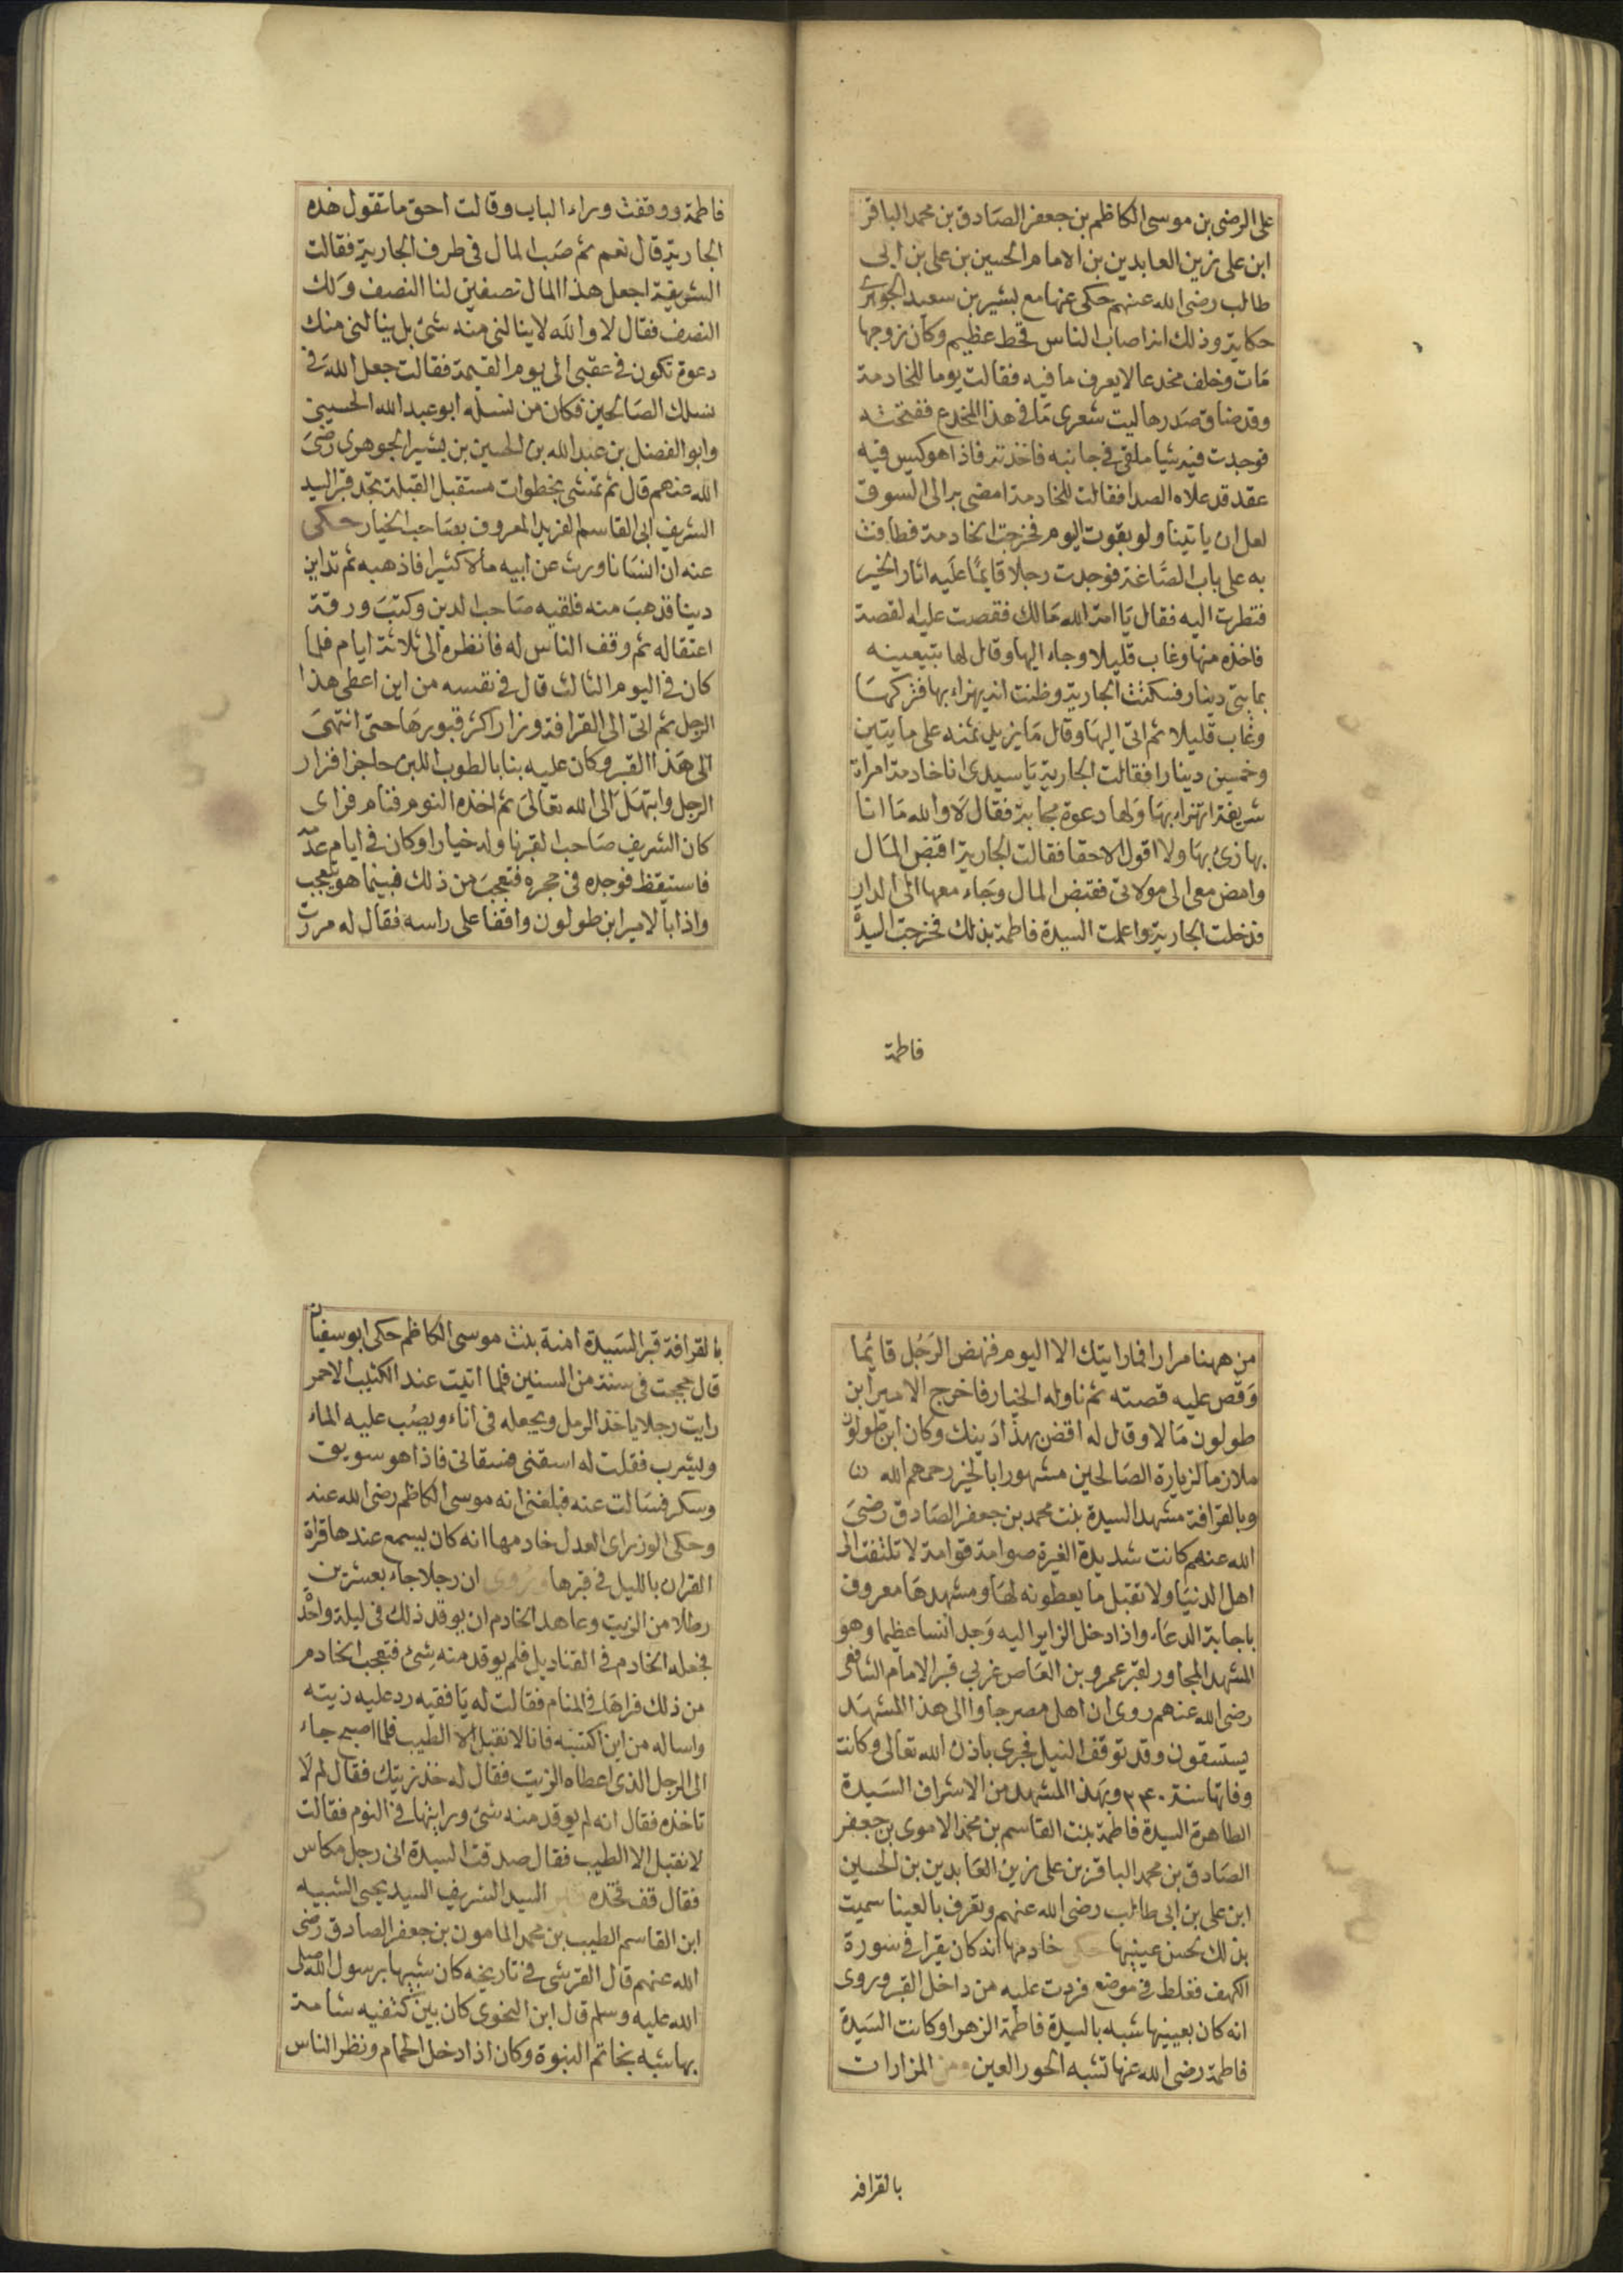 على الرضى بن موسى الكاظم بن جعفر الصادق بن محمد الباقر
ابن على زين العابدين بن الامام الحسين بن على بن ابى
طالب رضى الله عنهم حكى عنها مع بشير بن سعيد الجوهرى
حكاية وذلك انه اصاب الناس قحط عظيم وكان زوجها
مات وخلف مخدعا لا يعرف ما فيه فقالت يوما للخادمة
وقد ضاق صدرها ليت شعرى ما فى هذا المخدع ففتحته
فوجدت فيه شيا ملقى فى جانبه فاخذته فاذا هو كيس فيه
عقد قد علاه الصدا فقالت للخادمة امضى به الى السوق
لعل ان ياتينا ولو بقوت اليوم فخرجت الخادمة فطافت
به على باب الصاغة فوجدت رجلا قايما عليه اثار الخير
فنظرت اليه فقال يا امة الله مالك فقصت عليه القصة
فاخذه منها وغاب قليلا وجاء اليها وقال لها تبيعينه
بمايتى دينار فسكتت الجارية وظنت انه يهزاء بها فتركها
وغاب قليلا ثم اتى اليها وقال ما يزيد ثمنه على مايتين
وخمسين دينارا فقالت الجارية يا سيدى انا خادمة امراة
شريفة اتهزاء بها ولها دعوة مجابة فقال لا والله ما انا
بهازئ بها ولا اقول الا حقا فقالت الجارية اقبض المال
وامض معى الى مولاتى فقبض المال وجاء معها الى الدار
فدخلت الجارية واعلمت السيدة فاطمة بذلك فخرجت السيدة
فاطمة
فاطمة ووقفت وراء الباب وقالت احق ما تقول هذه
الجارية قال نعم ثم صب المال فى طرف الجارية فقالت
الشريفة اجعل هذا المال نصفين لنا النصف ولك
النصف فقال لا والله لا ينالنى منه شئ بل ينالنى منك
دعوة تكون فى عقبى الى يوم القيمة فقالت جعل الله فى
نسلك الصالحين فكان من نسله ابو عبد الله الحسين
وابو الفضل بن عبد الله بن الحسين بن بشير الجوهرى رضى
الله عنهم قال ثم تمشى بخطوات مستقبل القبلة تجد قبر السيد
الشريف ابى القاسم الفريد المعروف بصاحب الخيار حكى
عنه ان انسانا ورث عن ابيه مالا كثيرا فاذهبه ثم تداين
دينا فذهب منه فلقيه صاحب الدين وكتب ورقة
اعتقاله ثم وقف الناس له فانظره الى ثلاثة ايام فلما
كان فى اليوم الثالث قال فى نفسه من اين اعطى هذا
الرجل ثم اتى الى القرافة وزار اكثر قبورها حتى انتهى
الى هذا القبر وكان عليه بنا بالطوب اللبن حاجزا فزار
الرجل وابتهل الى الله تعالى ثم اخذه النوم فنام فراى
كان الشريف صاحب القبر ناوله خيارا وكان فى ايام عدمه
فاستيقظ فوجده فى حجره فتعجب من ذلك فبينما هو يتعجب
واذا بالامير ابن طولون واقفا على راسه فقال له مررت
من ههنا مرارا فما رايتك الا اليوم فنهض الرجل قايما
وقص عليه قصته ثم ناوله الخيار فاخرج الامير ابن
طولون مالا وقال له اقض بهذا دينك وكان ابن طولون
ملازما لزيارة الصالحين مشهورا بالخير رحمهم الله
وبالقرافة مشهد السيدة بنت محمد بن جعفر الصادق رضى
الله عنهم كانت شديدة الغيرة صوامة قوامة لا تلتفت الى
اهل الدنيا ولا تقبل ما يعطونه لها ومشهدها معروف
باجابة الدعاء واذا دخل الزاير اليه وجد انسا عظيما وهو
المشهد المجاور لقبر عمرو بن العاص غربى قبر الامام الشافعى
رضى الله عنهم روى ان اهل مصر جاوا الى هذا المشهد
يستسقون وقد توقف النيل فجرى باذن الله تعالى وكانت
وفاتها سنة ٣٤٠ وبهذا المشهد من الاشراف السيدة
الطاهرة السيدة فاطمة بنت القاسم بن محمد الاموى بن جعفر
الصادق بن محمد الباقر بن على زين العابدين بن الحسين
ابن على بن ابى طالب رضى الله عنهم وتعرف بالعينا سميت
بذلك لحسن عينيها حكى خادمها انه كان يقرا فى سورة
الكهف فغلط فى موضع فردت عليه من داخل القبر وروى
انه كان بعينيها شبه بالسيدة فاطمة الزهرا وكانت السيدة
فاطمة رضى الله عنها تشبه الحور العين ومن المزارات
بالقرافة
بالقرافة قبر السيدة امنة بنت موسى الكاظم حكى ابو سفيان
قال حججت فى سنة من السنين فلما اتيت عند الكثيب الاحمر
رايت رجلا ياخذ الرمل ويجعله فى اناء ويصب عليه الماء
ويشرب فقلت له اسقنى فسقانى فاذا هو سويق
وسكر فسالت عنه فبلغنى انه موسى الكاظم رضى الله عنه
وحكى الوزراى العدل خادمها انه كان يسمع عندها قراة
القران بالليل فى قبرها وروى ان رجلا جاء بعشرين
رطلا من الزيت وعاهد الخادم ان يوقد ذلك فى ليلة واحدة
فجعله الخادم فى القناديل فلم يوقد منه شئ فتعجب الخادم
من ذلك فراها فى المنام فقالت له يا فقيه رد عليه زيته
واساله من اين اكتسبه فانا لا نقبل الا الطيب فلما اصبح جاء
الى الرجل الذى اعطاه الزيت فقال له خذ زيتك فقال لم لا
تاخذه فقال انه لم يوقد منه شئ ورايتها فى النوم فقالت
لا نقبل الا الطيب فقال صدقت السيدة انى رجل مكاس
فقال قف فخذه قبر السيد الشريف السيد يحيى الشبيه
ابن القاسم الطيب بن محمد المامون بن جعفر الصادق رضى
الله عنهم قال القرشى فى تاريخه كان شبيها برسول الله صلى
الله عليه وسلم قال ابن النحوى كان بين كتفيه شامة
بها شبه بخاتم النبوة وكان اذا دخل الحمام ونظر الناس